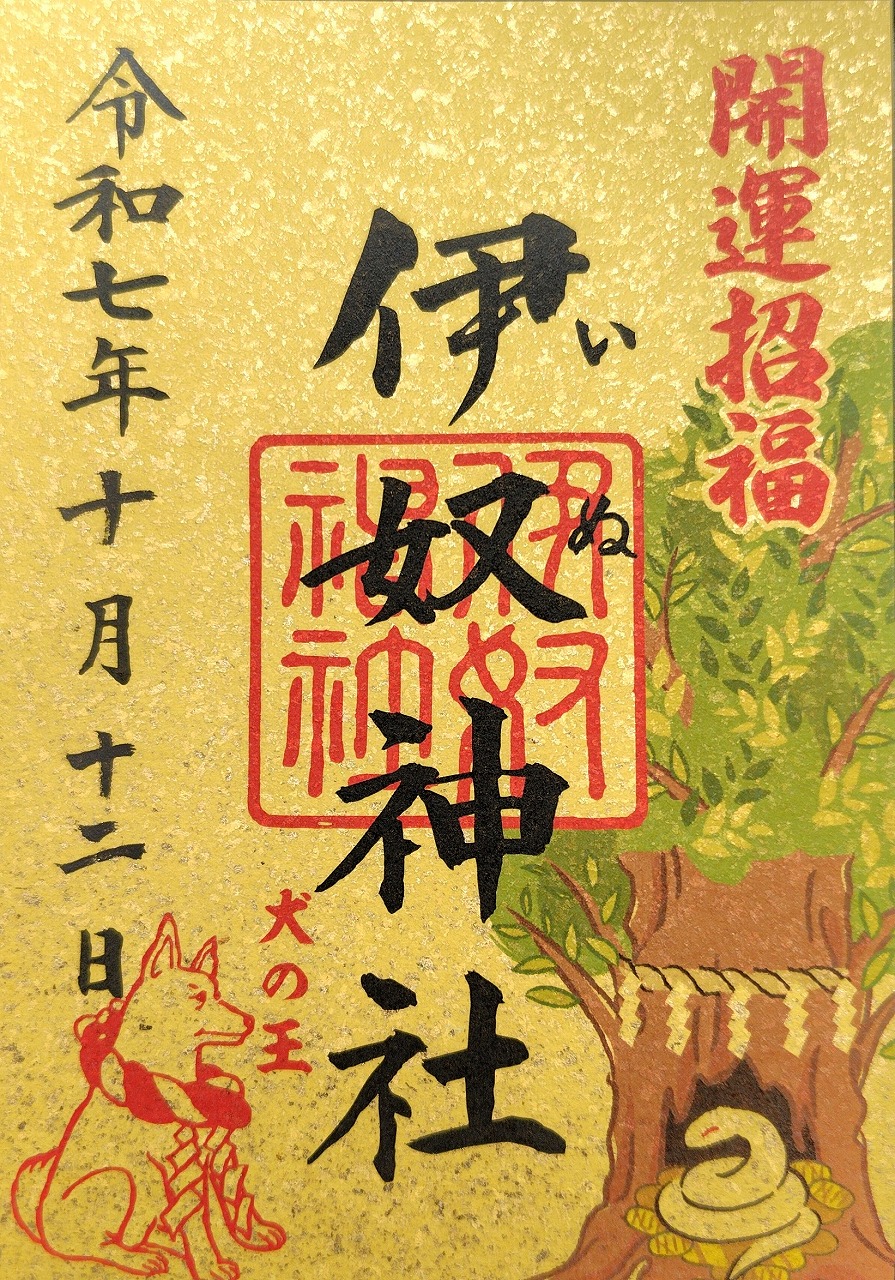 開運招福
伊奴神社
いぬ
伊奴
神社
犬の王
令和七年十月十二日